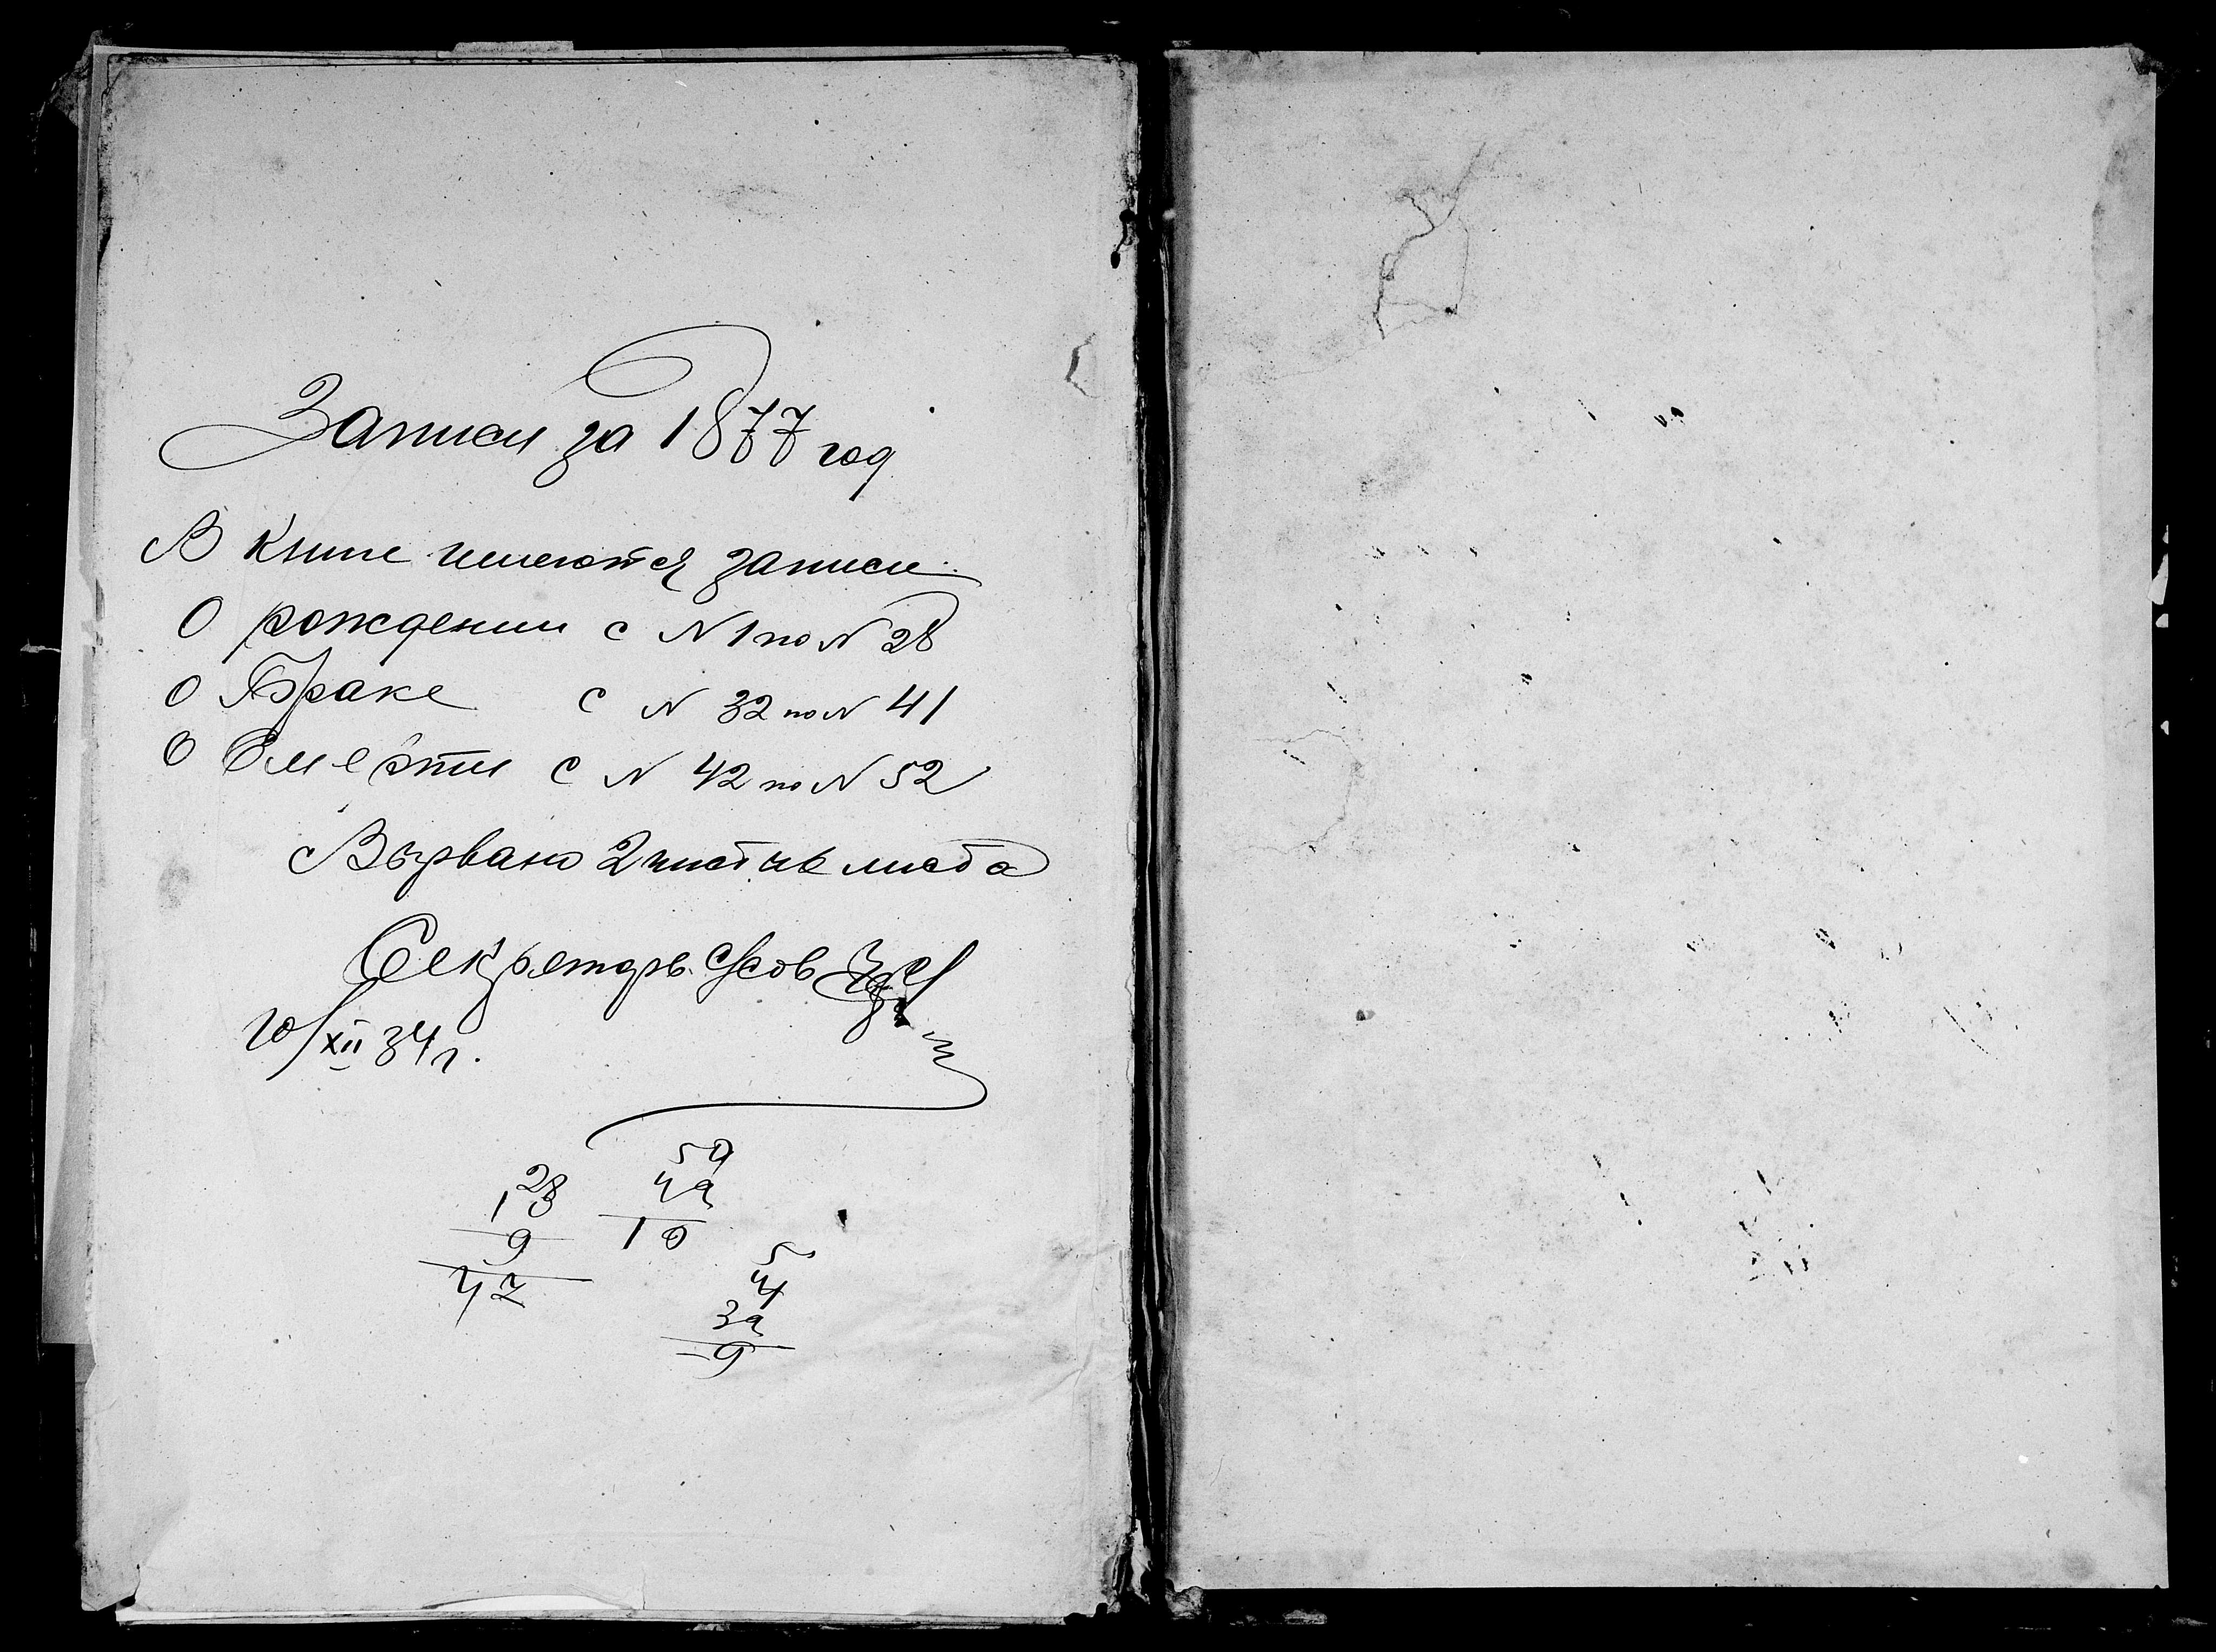 Записи за 1877 год
В книге имеются записи
О рождении с N 1 по N 28
О Браке с N 32 по N 41
О Смерти с N 42 по N 52
Вырвано 2 чистых листа
Секретарь с/сов
10/XII 34 г.
28
9
47
10
5
9